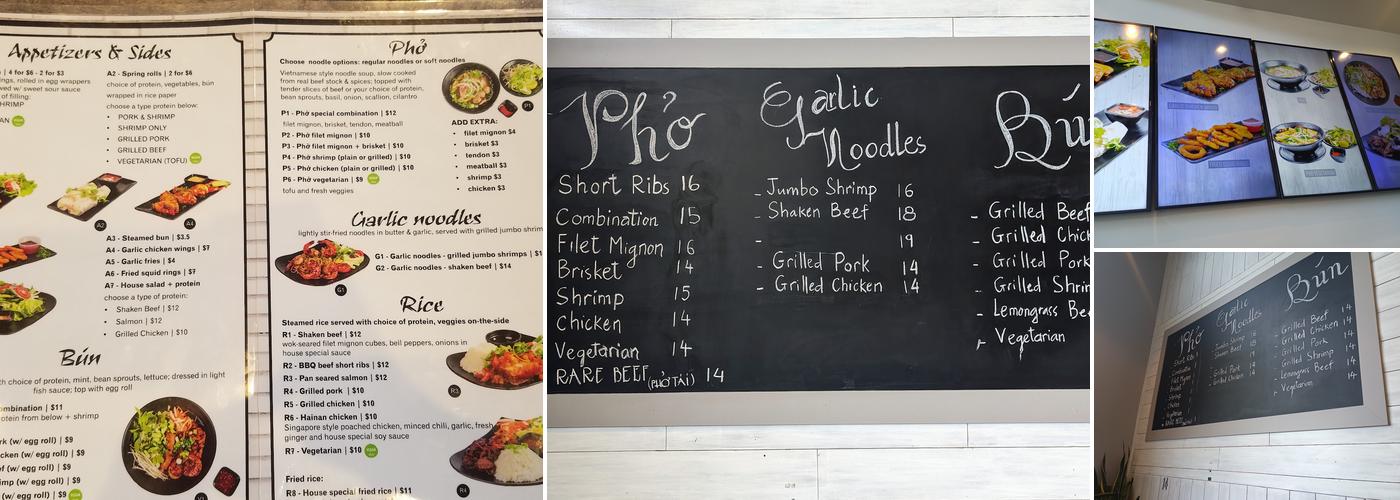 Appetizers & Sides
| 4 for $6 - 2 for $3
ngs, rolled in egg wrappers
ved w/ sweet sour sauce
of filling:
HRIMP
AN
A2 - Spring rolls | 2 for $6
choice of protein, vegetables, bún
wrapped in rice paper
choose a type protein below:
• PORK & SHRIMP
• SHRIMP ONLY
• GRILLED PORK
• GRILLED BEEF
• VEGETARIAN (TOFU)
A2
A4
A3 - Steamed bun | $3.5
A4 - Garlic chicken wings | $7
A5 - Garlic fries | $4
A6 - Fried squid rings | $7
A7 - House salad + protein
choose a type of protein:
• Shaken Beef | $12
• Salmon | $12
• Grilled Chicken | $10
Bún
th choice of protein, mint, bean sprouts, lettuce; dressed in light
fish sauce; top with egg roll
ombination | $11
otein from below + shrimp
rk (w/ egg roll) | $9
cken (w/ egg roll) | $9
ef (w/ egg roll) | $9
imp (w/ egg roll) | $9
(w/ egg roll) | $9
Phở
Choose noodle options: regular noodles or soft noodles
Vietnamese style noodle soup, slow cooked
from real beef stock & spices; topped with
tender slices of beef or your choice of protein,
bean sprouts, basil, onion, scallion, cilantro
P1
P1 - Phở special combination | $12
filet mignon, brisket, tendon, meatball
P2 - Phở filet mignon | $10
P3 - Phở filet mignon + brisket | $10
P4 - Phở shrimp (plain or grilled) | $10
P5 - Phở chicken (plain or grilled) | $10
P6 - Phở vegetarian | $9
tofu and fresh veggies
ADD EXTRA:
• filet mignon $4
• brisket $3
• tendon $3
• meatball $3
• shrimp $3
• chicken $3
Garlic noodles
lightly stir-fried noodles in butter & garlic, served with grilled jumbo shrim
G1 - Garlic noodles - grilled jumbo shrimps | $1
G2 - Garlic noodles - shaken beef | $14
G1
Rice
Steamed rice served with choice of protein, veggies on-the-side
R1 - Shaken beef | $12
wok-seared filet mignon cubes, bell peppers, onions in
house special sauce
R2 - BBQ beef short ribs | $12
R3 - Pan seared salmon | $12
R4 - Grilled pork | $10
R5 - Grilled chicken | $10
R6 - Hainan chicken | $10
Singapore style poached chicken, minced chili, garlic, fresh
ginger and house special soy sauce
R7 - Vegetarian | $10
R3
R4
Fried rice:
R8 - House special fried rice | $11
Phở
Short Ribs 16
Combination 15
Filet Mignon 16
Brisket 14
Shrimp 15
Chicken 14
Vegetarian 14
RARE BEEF (PHỞ TÁI) 14
Garlic
Noodles
- Jumbo Shrimp 16
- Shaken Beef 18
- 19
- Grilled Pork 14
- Grilled Chicken 14
Bú
- Grilled Beef
- Grilled Chick
- Grilled Pork
- Grilled Shrim
- Lemongrass Be
- Vegetarian
Phở
Short Ribs 16
Combination 15
Filet Mignon 16
Brisket 14
Shrimp 15
Chicken 14
Vegetarian 14
RARE BEEF
Garlic
Noodles
- Jumbo Shrimp 16
- Shaken Beef 18
- 19
- Grilled Pork 14
- Grilled Chicken 14
Bún
- Grilled Beef 14
- Grilled Chicken 14
- Grilled Pork 14
- Grilled Shrimp 14
- Lemongrass Beef 14
- Vegetarian 14